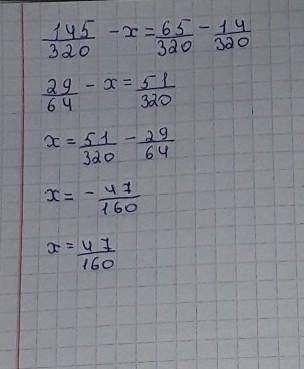 145/320 - x = 65/320 - 14/320
29/64 - x = 51/320
x = 51/320 - 29/64
x = - 47/160
x = 47/160